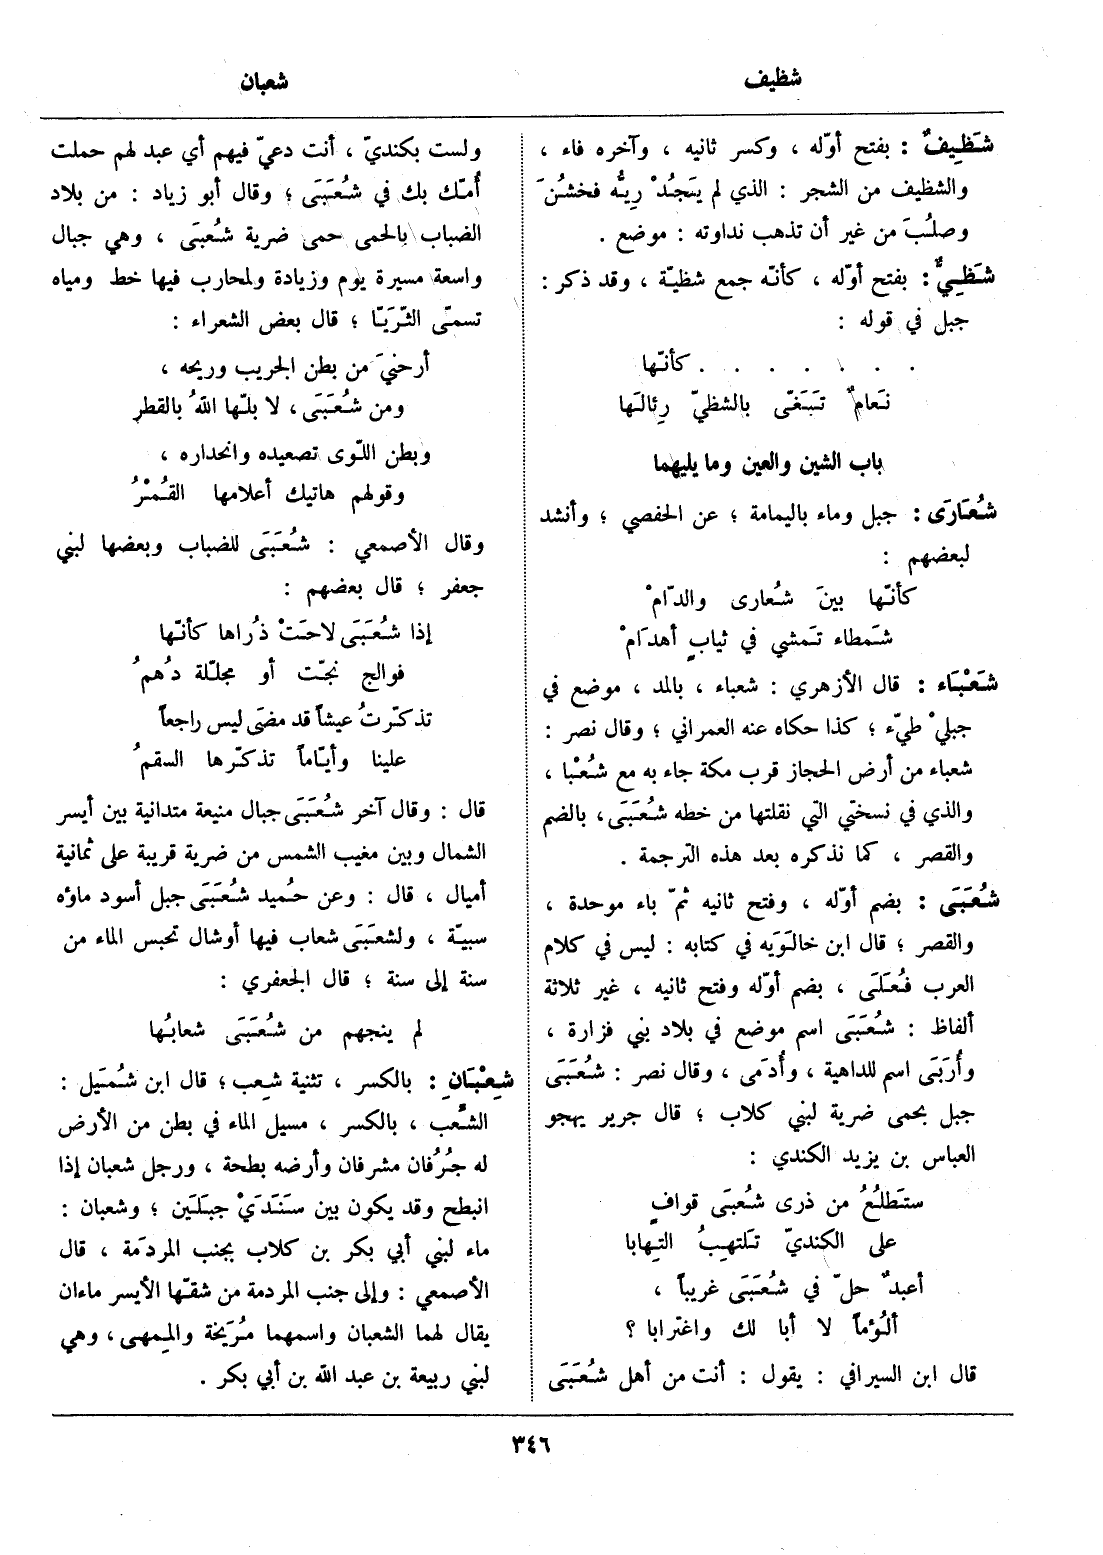 شظيف
شعبان
شَظِيفٌ : بفتح أوّله ، وكسر ثانيه ، وآخره فاء ،
والشظيف من الشجر : الذي لم يَجِدْ رِيَّه فخشُنَ
وصلُبَ من غير أن تذهب نداوته : موضع .
شَظِيٌّ : بفتح أوّله ، كأنّه جمع شظيّة ، وقد ذكر :
جبل في قوله :
. . . . . . . كأنّها
نَعامٌ تَبَغّى بالشظيّ رِئالَها
باب الشين والعين وما يليهما
شُعَارَى : جبل وماء باليمامة ؛ عن الحفصي ؛ وأنشد
لبعضهم :
كأنّها بينَ شُعارى والدّامْ
شَمطاء تَمشي في ثيابٍ أهدَامْ
شَعْبَاء : قال الأزهري : شعباء ، بالمد ، موضع في
جبليْ طيّء ؛ كذا حكاه عنه العمراني ؛ وقال نصر :
شعباء من أرض الحجاز قرب مكة جاء به مع شُعْبا ،
والذي في نسختي التي نقلتها من خطه شُعَبَى ، بالضم
والقصر ، كما نذكره بعد هذه الترجمة .
شُعَبَى : بضم أوّله ، وفتح ثانيه ثمّ باء موحدة ،
والقصر ؛ قال ابن خالَوَيه في كتابه : ليس في كلام
العرب فُعَلَى ، بضم أوّله وفتح ثانيه ، غير ثلاثة
ألفاظ : شُعَبَى اسم موضع في بلاد بني فزارة ،
وأُرَبَى اسم للداهية ، وأُدَمَى ، وقال نصر : شُعَبَى
جبل بحمى ضرية لبني كلاب ؛ قال جرير يهجو
العباس بن يزيد الكندي :
ستَطلُعُ من ذرى شُعبَى قوافٍ
على الكنديّ تَلتهِبُ التِهابا
أعبدٌ حلّ في شُعَبَى غريباً ،
ألُؤماً لا أبا لك واغترابا ؟
قال ابن السيرافي : يقول : أنت من أهل شُعَبَى
ولست بكنديّ ، أنت دعيّ فيهم أي عبد لهم حملت
أُمّك بك في شُعَبَى ؛ وقال أبو زياد : من بلاد
الضباب بالحمى حمى ضرية شُعبَى ، وهي جبال
واسعة مسيرة يوم وزيادة ولمحارب فيها خط ومياه
تسمّى الثّرَيّا ؛ قال بعض الشعراء :
أرحنيَ من بطن الجريب وريحه ،
ومن شُعَبَى ، لا بلّها اللهُ بالقطرِ
وبطن اللّوى تصعيده وانحداره ،
وقولهم هاتيك أعلامها القُمْرُ
وقال الأصمعي : شُعَبَى للضباب وبعضها لبني
جعفر ؛ قال بعضهم :
إذا شُعَبَى لاحَتْ ذُراها كأنّها
فوالج نجّت أو مجلّلة دُهمُ
تذكّرتُ عيشاً قد مضَى ليس راجعاً
علينا وأيّاماً تذكّرها السقمُ
قال : وقال آخر شُعَبَى جبال منيعة متدانية بين أيسر
الشمال وبين مغيب الشمس من ضرية قريبة على ثمانية
أميال ، قال : وعن حُميد شُعَبَى جبل أسود ماؤه
سبيّة ، ولشعَبَى شعاب فيها أوشال تحبس الماء من
سنة إلى سنة ؛ قال الجعفري :
لم ينجهم من شُعَبَى شعابُها
شِعْبَانِ : بالكسر ، تثنية شِعب ؛ قال ابن شُمَيل :
الشِّعب ، بالكسر ، مسيل الماء في بطن من الأرض
له جُرُفان مشرفان وأرضه بطحة ، ورجل شعبان إذا
انبطح وقد يكون بين سَنَدَيْ جبَلَين ؛ وشعبان :
ماء لبني أبي بكر بن كلاب بجنب المردَمة ، قال
الأصمعي : وإلى جنب المردمة من شقّها الأيسر ماءان
يقال لهما الشعبان واسمهما مُرَيخة والمِمهى ، وهي
لبني ربيعة بن عبد الله بن أبي بكر .
٣٤٦